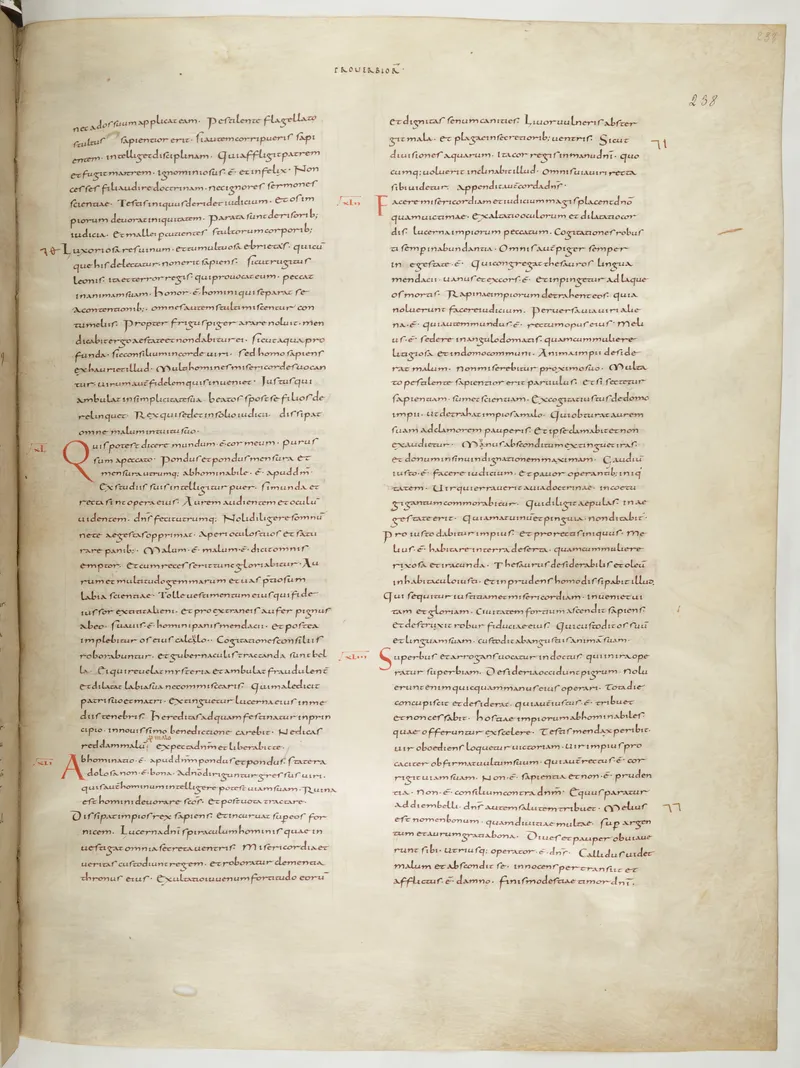 PROUERBIOR̄
238
238
nec ados suum applicat eam. Pestilente flagellato
stultus sapientior erit. si autem corripueris sapi
entem. intelleget disciplinam. Qui affligit patrem
et fugit matrem. ignominiosus ē et infelix. Non
cesses fili audire doctrinam. nec ignores sermones
scientiae. Testis iniquus deridet iudicium. et os im
piorum deuorat iniquitatem. Parata sunt derisorib;
iudicia. Et mallei percutientes stultorum corporib;
Luxuriosa res uinum. et tumultuosa ebrietas. quicū
que his delectatur. non erit sapiens. sicut rugitus
leonis. ita et terror regis. qui prouocat eum. peccat
in animam suam. honor ē homini qui separat se
a contentionib; omnes autem stulti miscentur con
tumeliis. Propter frigus piger arare noluit. men
dicabit ergo aestate et non dabitur ei. sicut aqua pro
funda. sic consilium in corde uiri. sed homo sapiens
exhauriet illud. Multi homines misericordes uocan
tur. uirum autē fidelem quis inueniet. Iustus qui
ambulat in simplicitate sua. beatos post se filios de
relinquet. Rex qui sedet in solio iudicii. dissipat
omne malum intuitu suo.
.xl. Quis potest dicere mundum ē cor meum. purus
sum a peccato. Pondus et pondus mensura et
mensura utrumq; abhominabile. ē. apud dm̄.
Ex studiis suis intellegitur puer. si munda et
recta sint opera eius. Aurem audientem et oculū
uidentem. dn̄s fecit utrumq; Noli diligere somnū
ne te aegestas opprimat. Aperi oculos tuos et satu
rare panib; Malum. ē. malum. ē. dicit omnis
emptor. Et cum recesserit tunc gloriabitur. Au
rum et multitudo gemmarum et uas p̄tiosum
labia scientiae. Tolle uestimentum eius qui fide
iussor extitit alieni. et pro extraneis aufer pignus
ab eo. suauis. ē. homini panis mendacii. et postea
implebitur os eius calculo. Cogitationes consiliis
roborabuntur. et gubernaculis tractanda sunt bel
la. Ei qui reuelat mysteria et ambulat fraudulent̄
et dilatat labia sua ne commiscearis. Qui maledicit
patri suo et matri. extinguetur lucerna eius in me
diis tenebris. Hereditas ad quam festinatur in prin
cipio. in nouissimo benedictione carebit. Ne dicas
reddam malū. expecta dn̄m et liberabit te.
Abhominatio. ē. apud dm̄ pondus et pondus. statera
dolosa non. ē. bona. A dn̄o diriguntur gressus uiri.
quis aut̄ hominum intellegere potest uiam suam. Ruina
est hominis deuorare sc̄os. et post uota tractare.
Dissipat impios rex sapiens. et incuruat sup eos for
nicem. Lucerna dn̄i spiraculum hominis quae in
uestigat omnia secreta uentris. Misericordia et
ueritas custodiunt regem. et roboratur clementia
thronus eius. Exultatio iuuenum fortitudo eorū
et dignitas senum canities. Liuor uulneris abster
git mala. et plagae in secretiorib; uentris. Sicut
diuisiones aquarum. ita cor regis in manu dn̄i. quo
cumq; uoluerit inclinabit illud. Omnis uia uiri recta
sibi uidetur. Appendit aut̄ corda dn̄s.
Facere misericordiam et iudicium magis placent dn̄o
quam uictimae. Exaltatio oculorum et dilatatio cor
dis. lucerna impiorum peccatum. Cogitationes robus
ti semp in abundantia. Omnis aut̄ piger semper
in egestate. ē. Qui congregat thesauros lingua
mendacii. uanus et excors. ē. et inpingetur ad laque
os mortis. Rapinae impiorum detrahent eos. quia
noluerunt facere iudicium. Peruersa uia uiri alie
na. ē. qui autem mundus. ē. rectum opus eius. Meli
us. ē. sedere in angulo domatis. quam cum muliere
litigiosa et in domo communi. Anima impii deside
rat malum. non miserebitur proximo suo. Multa
to pestilente sapientior erit paruulus. et si sectetur
sapientiam. sumet scientiam. Excogitat iustus de domo
impii. ut detrahat impios a malo. Qui obturat aurem
suam ad clamorem pauperis. et ipse clamabit et non
exaudietur. Munus absconditum extinguet iras.
et donum in sinu indignationem maximam. Gaudiū
iusto. ē. facere iudicium. et pauor operantib; iniq̄
tatem. Uir qui errauerit a uia doctrinae. in coetu
gigantum commorabitur. Qui diligit aepulas. in ae
gestate erit. Qui amat uinū et pinguia. non ditabit̄.
Pro iusto dabitur impius. et pro rectis iniquus. Me
lius. ē. habitare in terra deserta. quam cum muliere
rixosa et iracunda. Thesaurus desiderabilis et oleū
in habitaculo iusti. et inprudens homo dissipabit illud.
Qui sequitur iustitiam et misericordiam. inueniet ui
tam et gloriam. Ciuitatem fortium ascendit sapiens
et destruxit robur fiduciae eius. Qui custodit os suū
et linguam suam. custodit ab angustiis animā suam.
Superbus et arrogans uocatur indoctus qui in ira ope
ratur superbiam. Desideria occidunt pigrum. nolu
erunt enim quicquam manus eius operari. Tota die
concupiscit et desiderat. qui aut̄ iustus. ē. tribuet
et non cessabit. hostiae impiorum abhominabiles.
quae offeruntur ex scelere. Testis mendax peribit.
uir obediens loquetur uictoriam. Uir impius pro
caciter obfirmat uultum suum. qui aut̄ rectus. ē. cor
rigit uiam suam. Non. ē. sapientia et non. ē. pruden
tia. non. ē. consilium contra dn̄m. Equus paratur
ad diem belli. dn̄s autem salutem tribuet. Melius
est nomen bonum. quam diuitiae multae. sup argen
tum et aurum gratia bona. Diues et pauper obuiaue
runt sibi. utriusq; operator. ē. dn̄s. Callidus uidet
malum et abscondit se. innocens pertransiit et
afflictus. ē. damno. finis modestiae timor dn̄i.